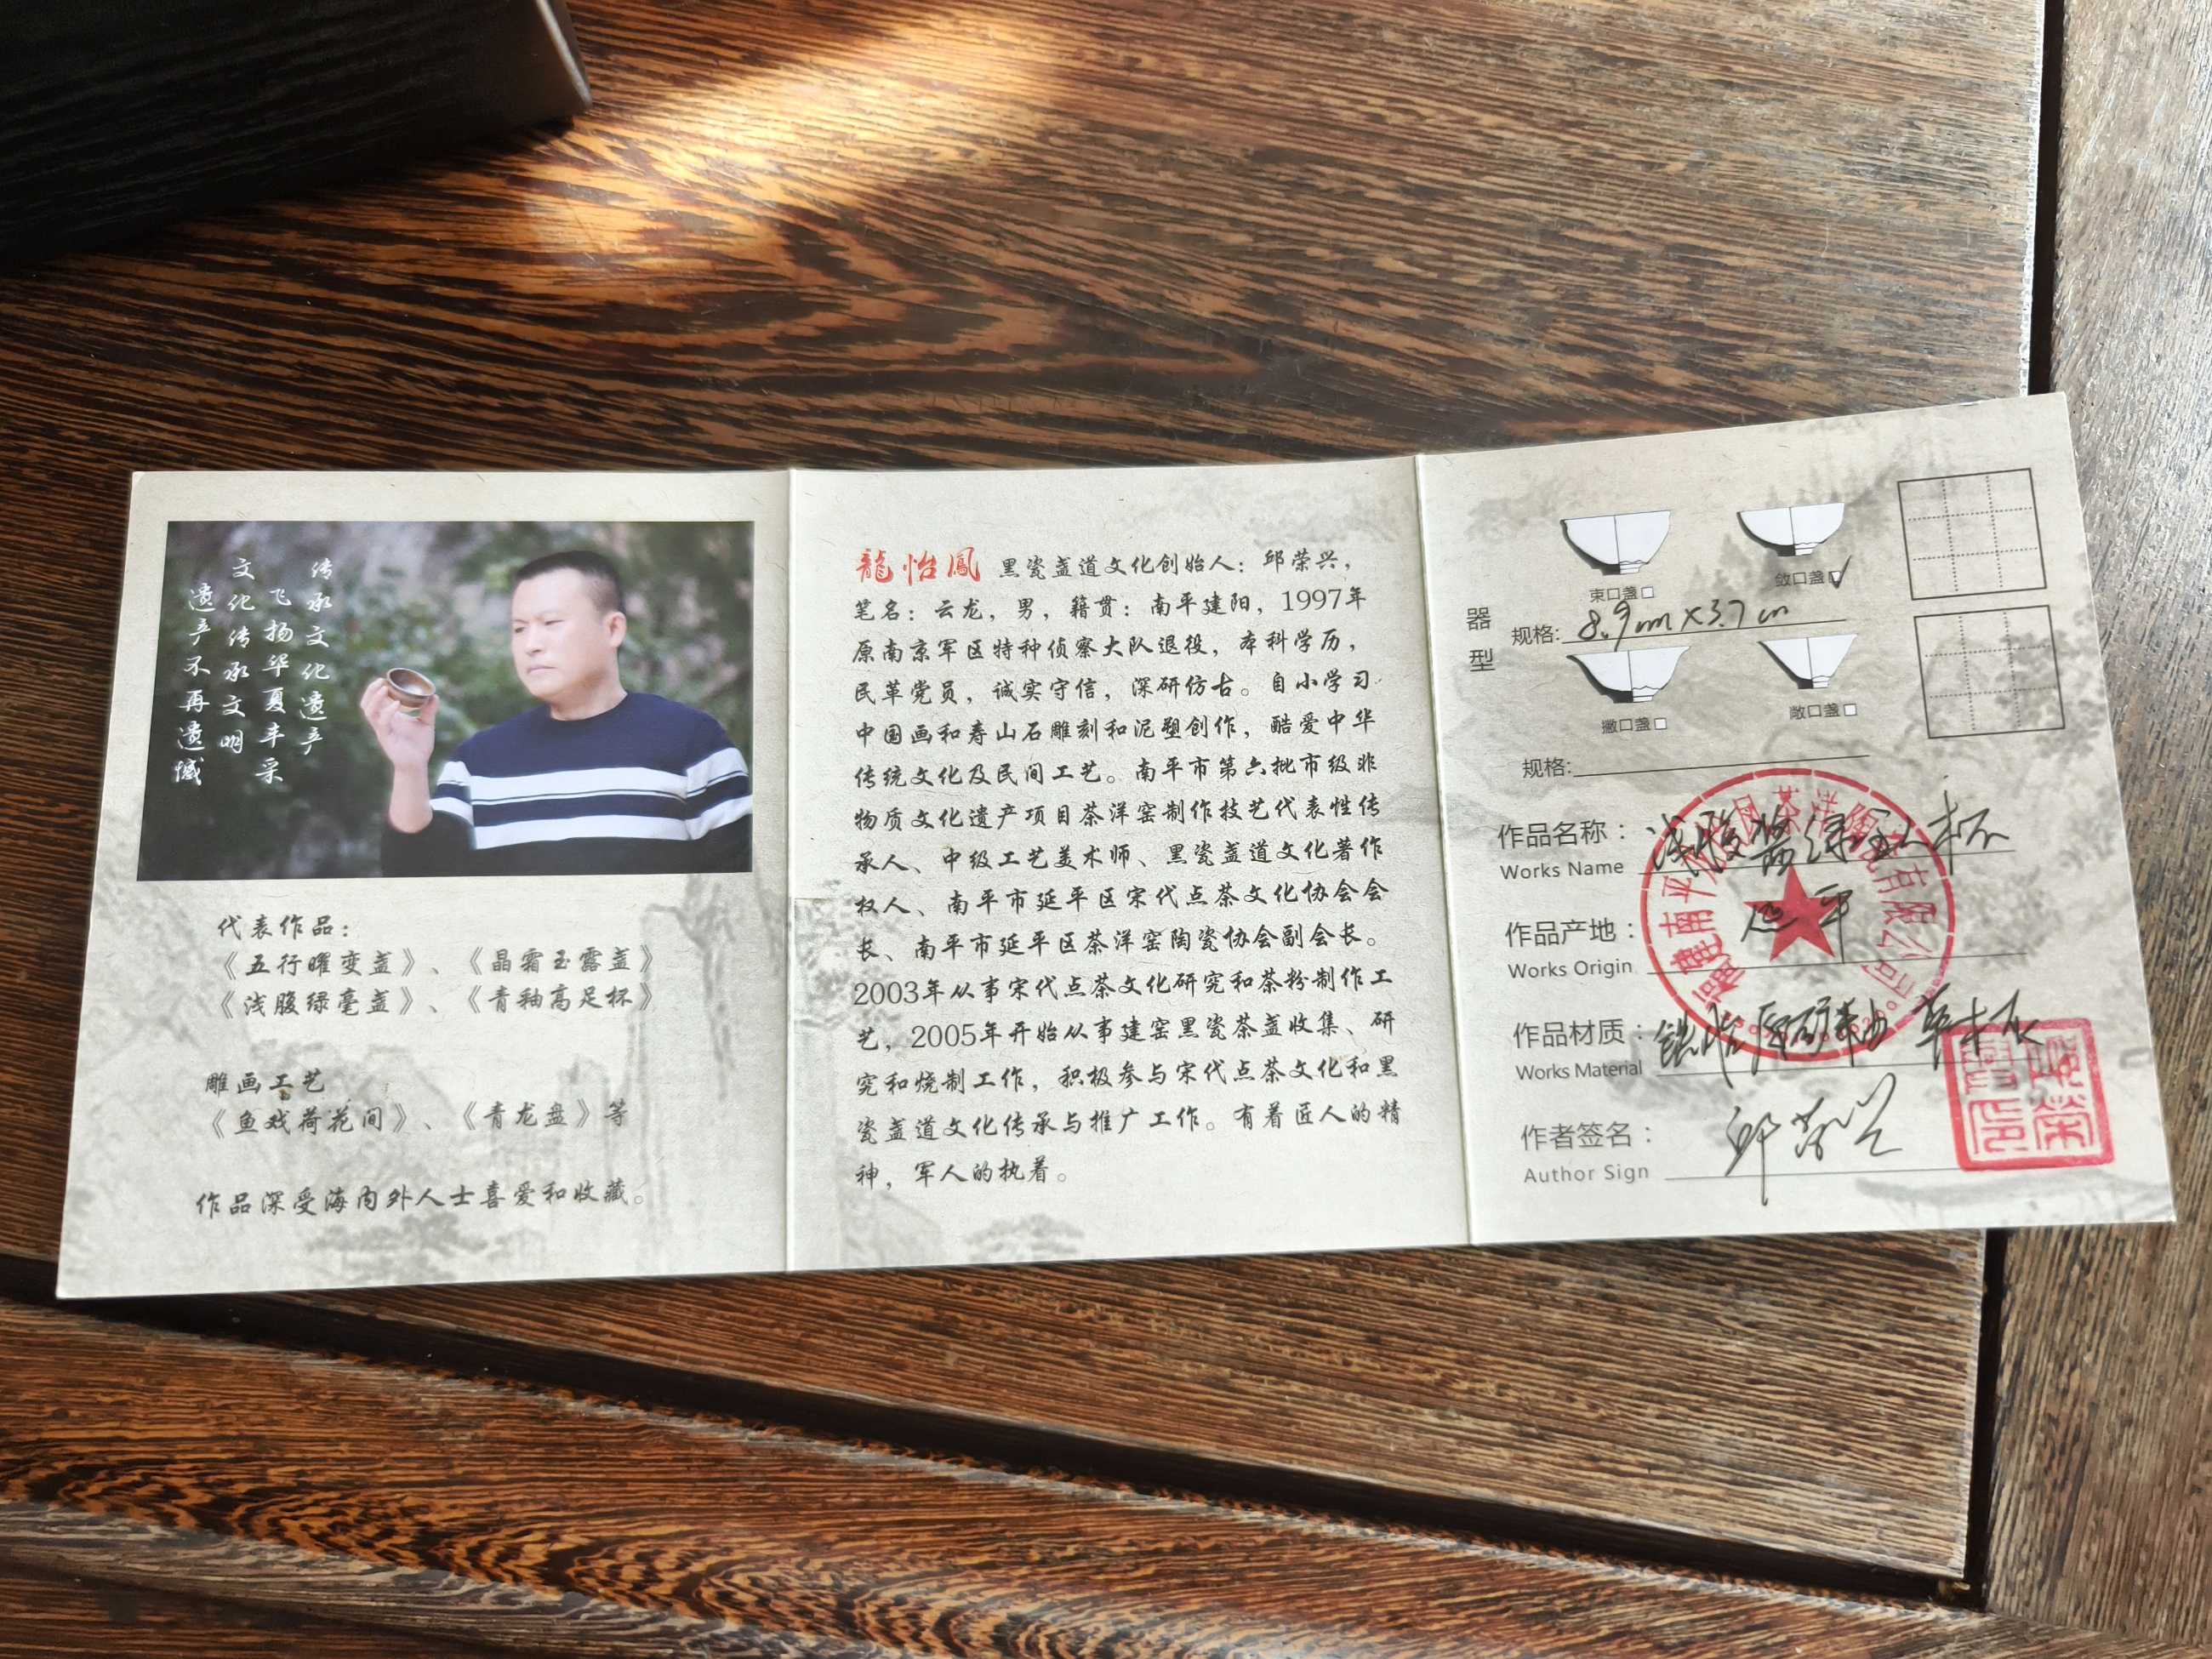 传承文化遗产
飞扬华夏丰采
文化传承文明
遗产不再遗憾
代表作品：
《五行曜变盏》、《晶霜玉露盏》
《浅腹绿毫盏》、《青釉高足杯》
雕画工艺
《鱼戏荷花间》、《青龙盘》等
作品深受海内外人士喜爱和收藏。
龍怡鳳 黑瓷盏道文化创始人：邱荣兴，
笔名：云龙，男，籍贯：南平建阳，1997年
原南京军区特种侦察大队退役，本科学历，
民革党员，诚实守信，深研仿古。自小学习
中国画和寿山石雕刻和泥塑创作，酷爱中华
传统文化及民间工艺。南平市第六批市级非
物质文化遗产项目茶洋窑制作技艺代表性传
承人、中级工艺美术师、黑瓷盏道文化著作
权人、南平市延平区宋代点茶文化协会会
长、南平市延平区茶洋窑陶瓷协会副会长。
2003年从事宋代点茶文化研究和茶粉制作工
艺，2005年开始从事建窑黑瓷茶盏收集、研
究和烧制工作，积极参与宋代点茶文化和黑
瓷盏道文化传承与推广工作。有着匠人的精
神，军人的执着。
器型
束口盏
敛口盏
规格: 8.9cm×3.7cm
撇口盏
敞口盏
规格:
作品名称：
Works Name
作品产地：延平
Works Origin
作品材质：
Works Material
作者签名：邱荣兴
Author Sign